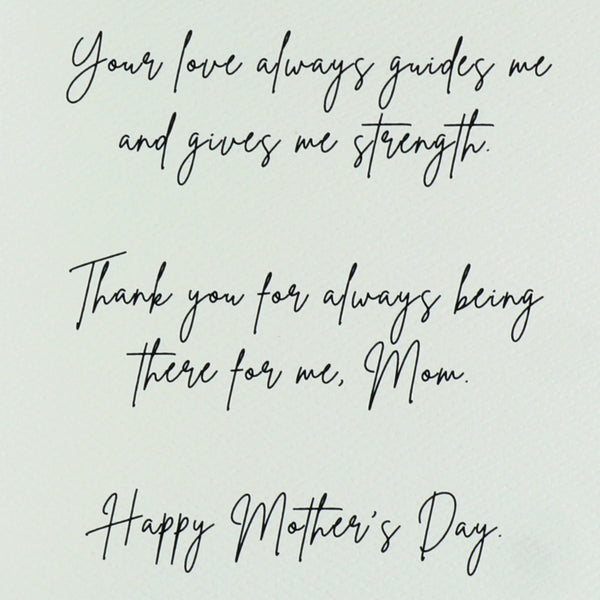 Your love always guides me
and gives me strength.
Thank you for always being
there for me, Mom.
Happy Mother's Day.